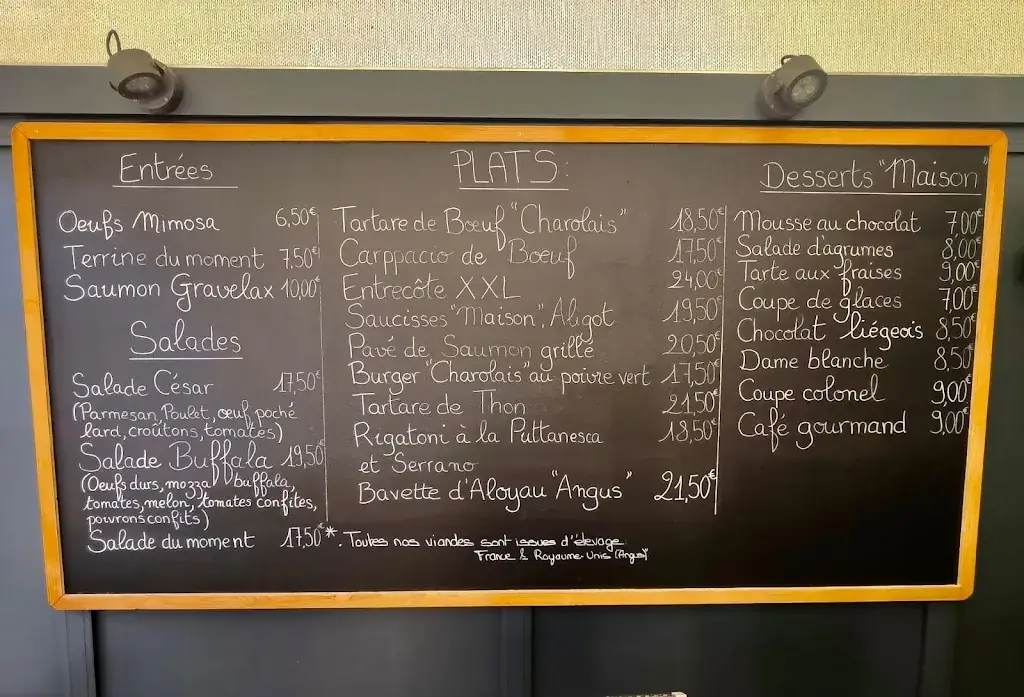 Entrées
Oeufs Mimosa 6,50€
Terrine du moment 7,50€
Saumon Gravelax 10,00€
Salades
Salade César 17,50€
(Parmesan, Poulet, œuf poché
lard, croûtons, tomates)
Salade Buffala 19,50
(Oeufs durs, mozza buffala,
tomates, melon, tomates confites,
poivrons confits)
Salade du moment 17,50€
PLATS:
Tartare de Bœuf "Charolais" 18,50€
Carppacio de Boeuf 17,50€
Entrecôte XXL 24,00€
Saucisses "Maison", Aligot 19,50€
Pavé de Saumon grillé 20,50€
Burger "Charolais" au poivre vert 17,50€
Tartare de Thon 21,50€
Rigatoni à la Puttanesca 18,50€
et Serrano
Bavette d'Aloyau "Angus" 21,50€
*. Toutes nos viandes sont issues d'élevage
France & Royaume-Unis (Angus)
Desserts "Maison"
Mousse au chocolat 7,00€
Salade d'agrumes 8,00€
Tarte aux fraises 9,00€
Coupe de glaces 7,00€
Chocolat liégeois 8,50€
Dame blanche 8,50
Coupe colonel 9,00€
Café gourmand 9,00€